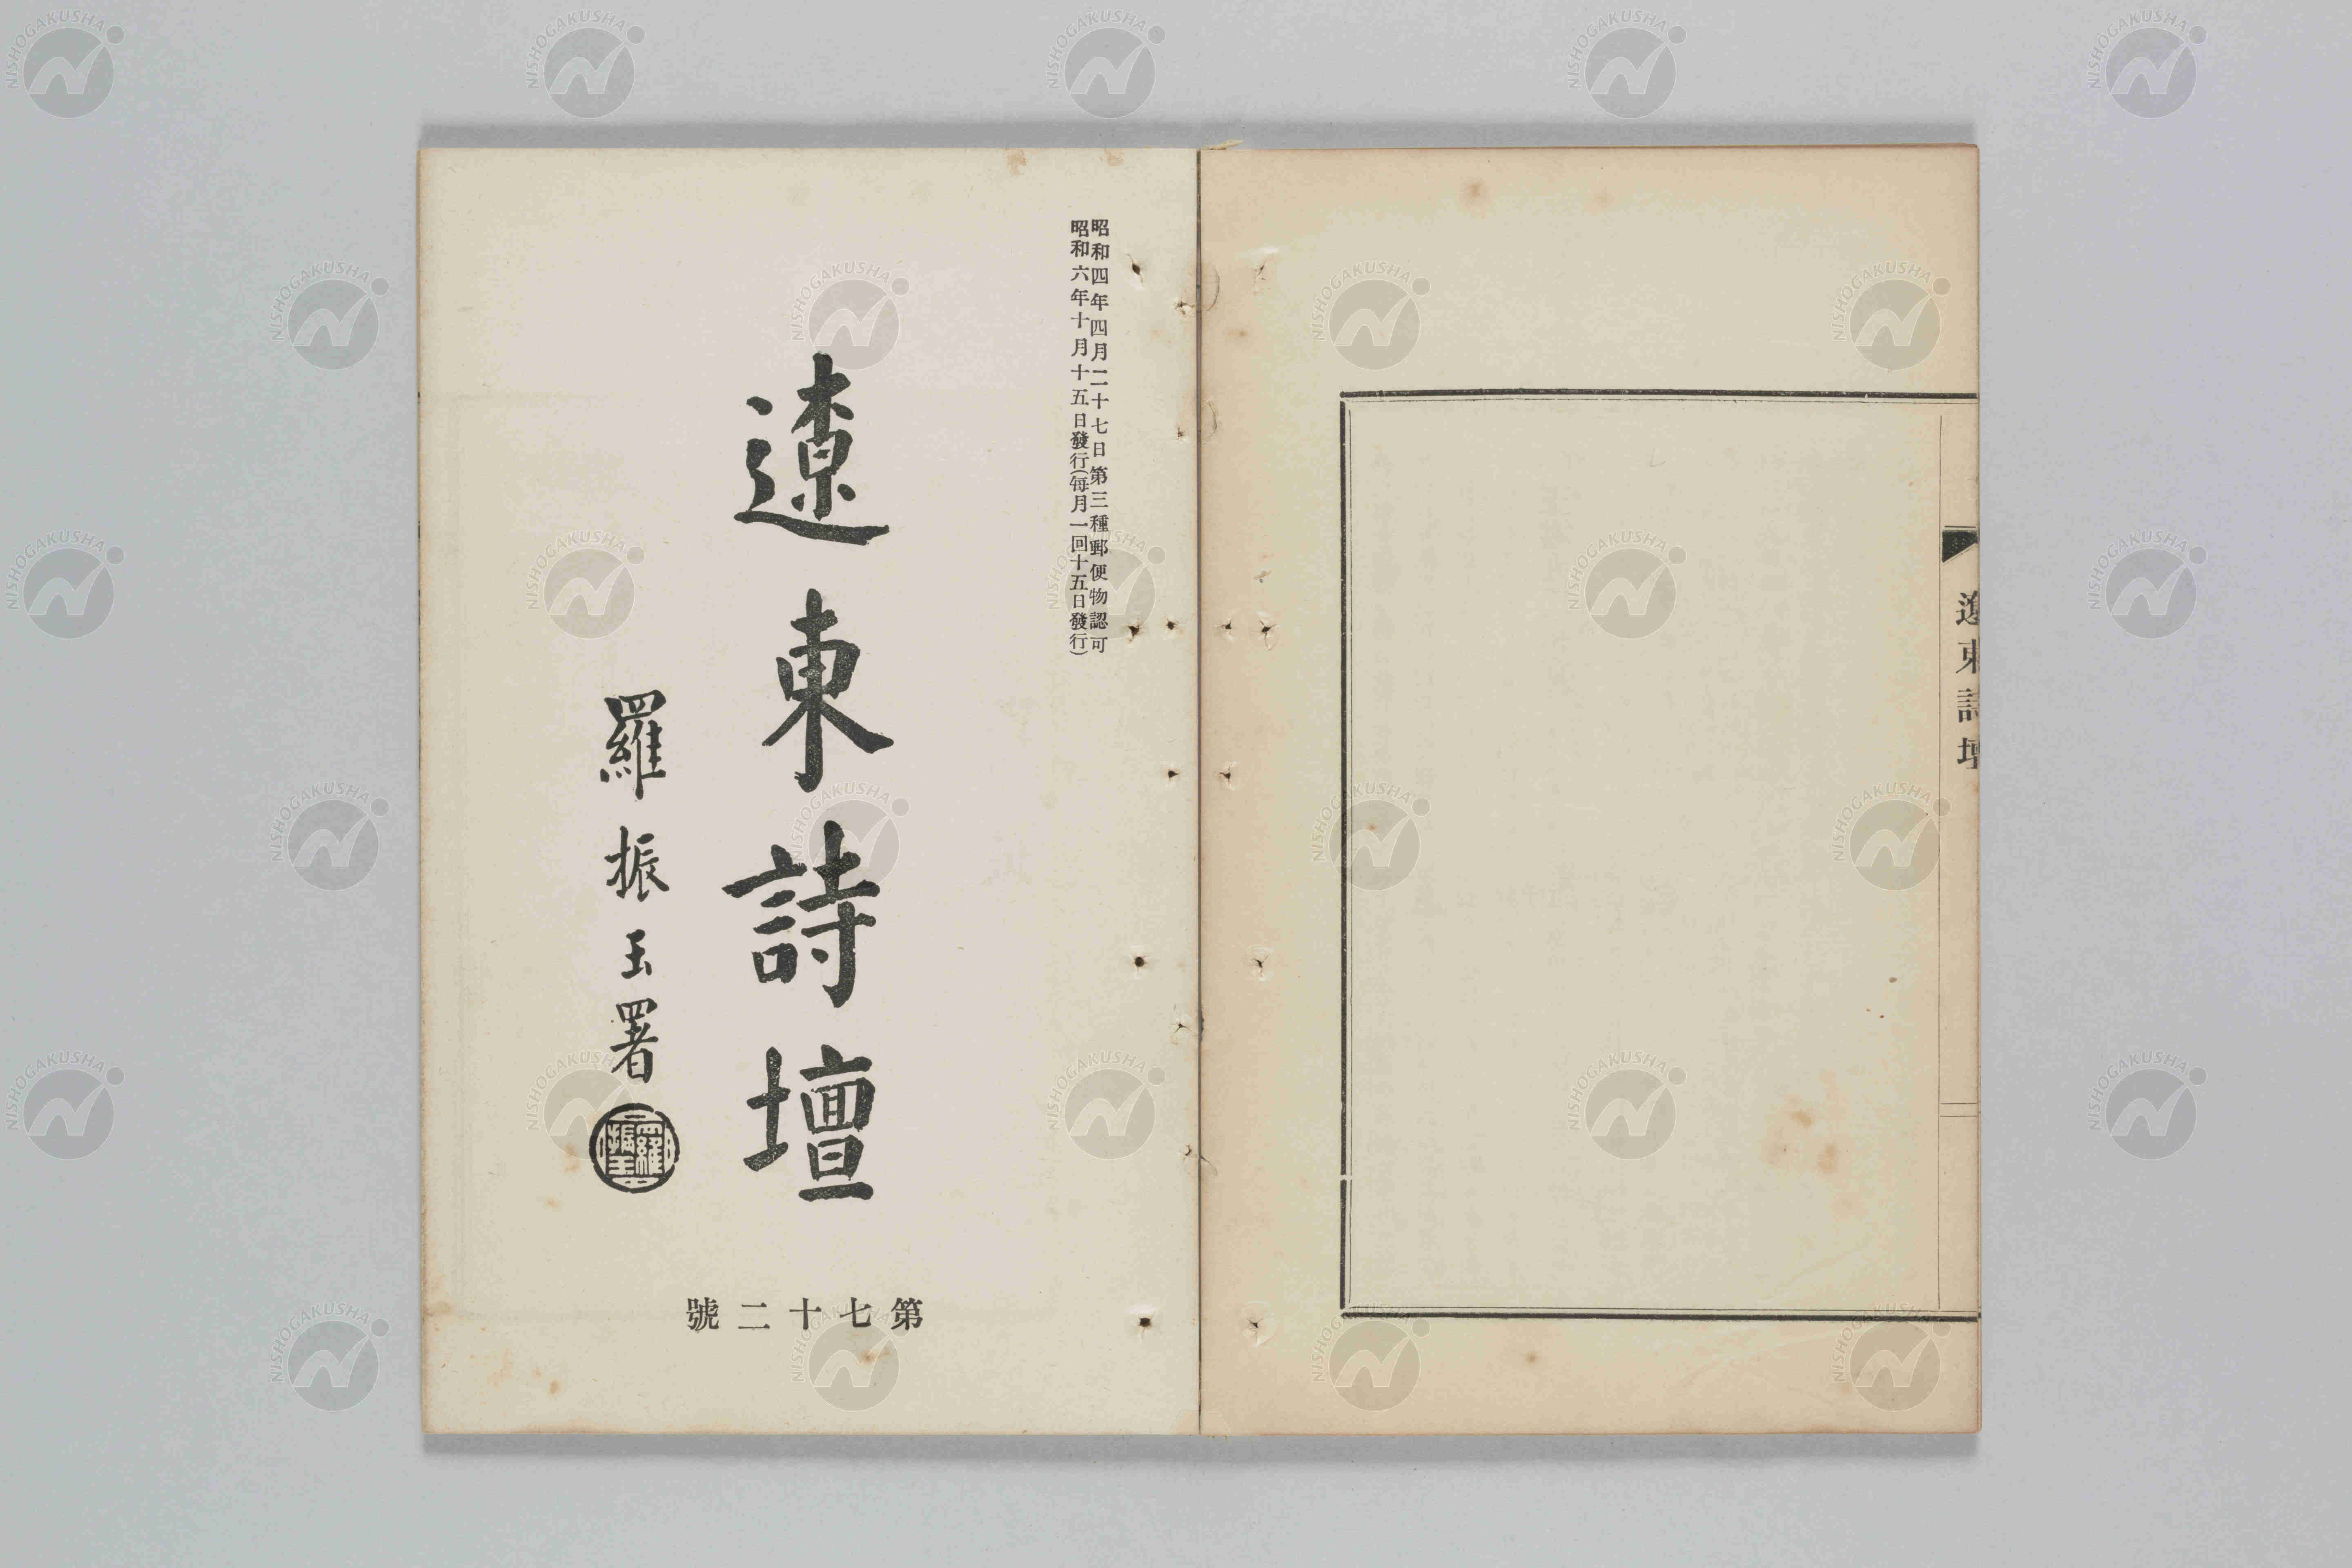 遼東詩壇
昭和四年四月二十七日第三種郵便物認可
昭和六年十月十五日發行(每月一回十五日發行)
遼東詩壇
羅振玉署
羅振玉
第七十二號
NISHOGAKUSHA